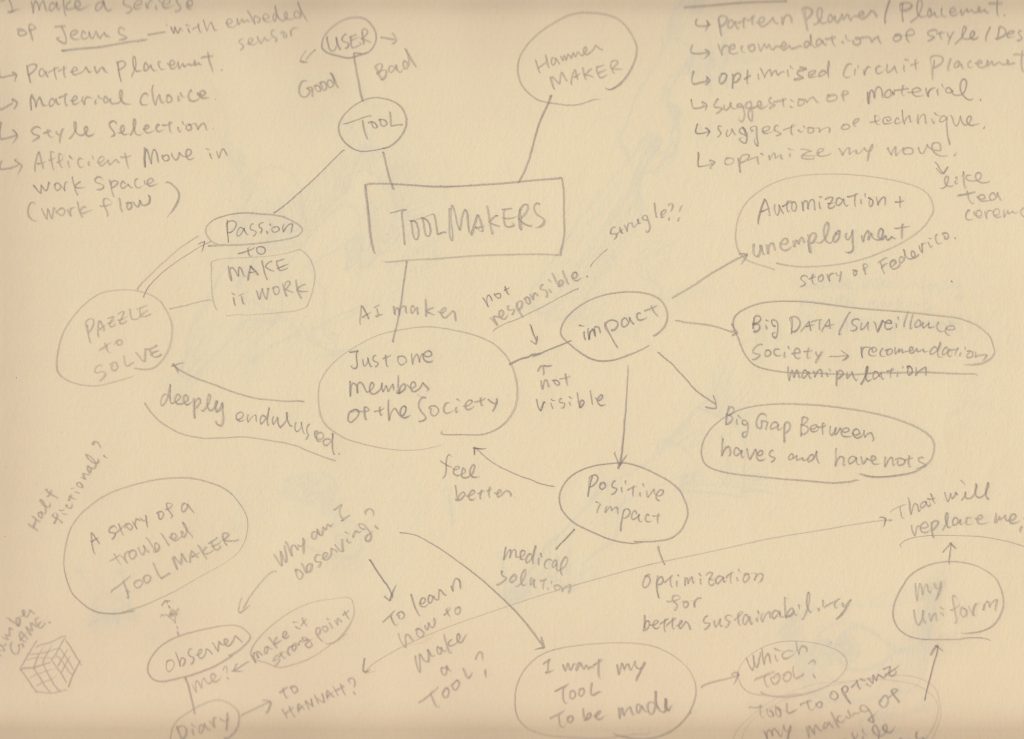 I make a seriese
of Jeans — with embeded
sensor
↳ Pattern placement.
↳ Material choice
↳ Style Selection
↳ Afficient Move in
work space
(work flow)
USER
Good
Bad
TOOL
Hammer
MAKER
↳ pattern planner/Placement.
↳ recomendation of style/Des
↳ optimised Circuit Placement
↳ suggestion of material.
↳ suggestion of technique.
↳ optimize my move.
like
tea
cerem
TOOLMAKERS
Passion
to
MAKE
it WORK
PAZZLE
to
SOLVE
AI maker
Just one
member
of the Society
deeply endulused.
not
responsible.
strugle?!
not
visible
impact
Automization +
unemployment
story of Federico.
Big DATA/Surveillance
Society → recomendation
manipulation
Big Gap Between
haves and havenots
feel
better
Positive
impact
medical
solution
optimization
for
better sustainability
That will
replace me,
my
uniform
Half
fictional?
A story of a
troubled
TOOLMAKER
Why am I
observing?
observer
me?
make it
strong point
Diary
TO
HANNAH?
To learn
how to
make
a
TOOL?
I want my
TOOL
To be made
which
TOOL?
TOOL TO OPTIMZ
my making of
GAME.